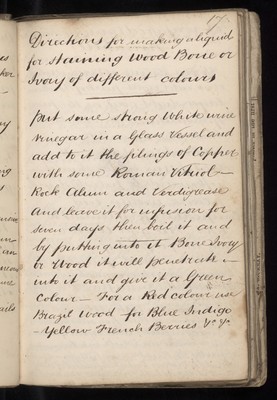 17
Directions for making a liquid
for staining Wood Bone or
Ivory of different colours
put some strong White wine
vinegar in a Glass Vessel and
add to it the filings of Copper
with some Roman Vitriol
Rock Alum and Verdigrease
And leave it for infusion for
seven days then boil it and
by putting into it Bone Ivory
or Wood it will penetrate
into it and give it a Green
Colour — For a Red colour use
Brazil Wood for Blue Indigo
Yellow French Berries &c &c